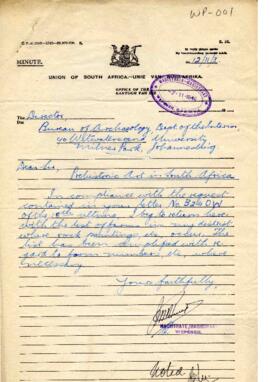 WP-001
MINUTE.
UNION OF SOUTH AFRICA.—UNIE VAN SUID-AFRIKA.
OFFICE OF THE
KANTOOR VAN DIE
The Director
Die
Bureau of Archaeology, Dept of the Interior
Witwatersrand University
Milner Park, Johannesburg
Dear Sir,
Prehistoric Art in South Africa
In compliance with the request
contained in your letter No
of the ultimo, I beg to return here
with the list of farms in my district
where rock paintings etc occur. The
list has been amplified with re
gard to farm numbers etc, where
necessary.
Yours faithfully,
MAGISTRATE
Noted